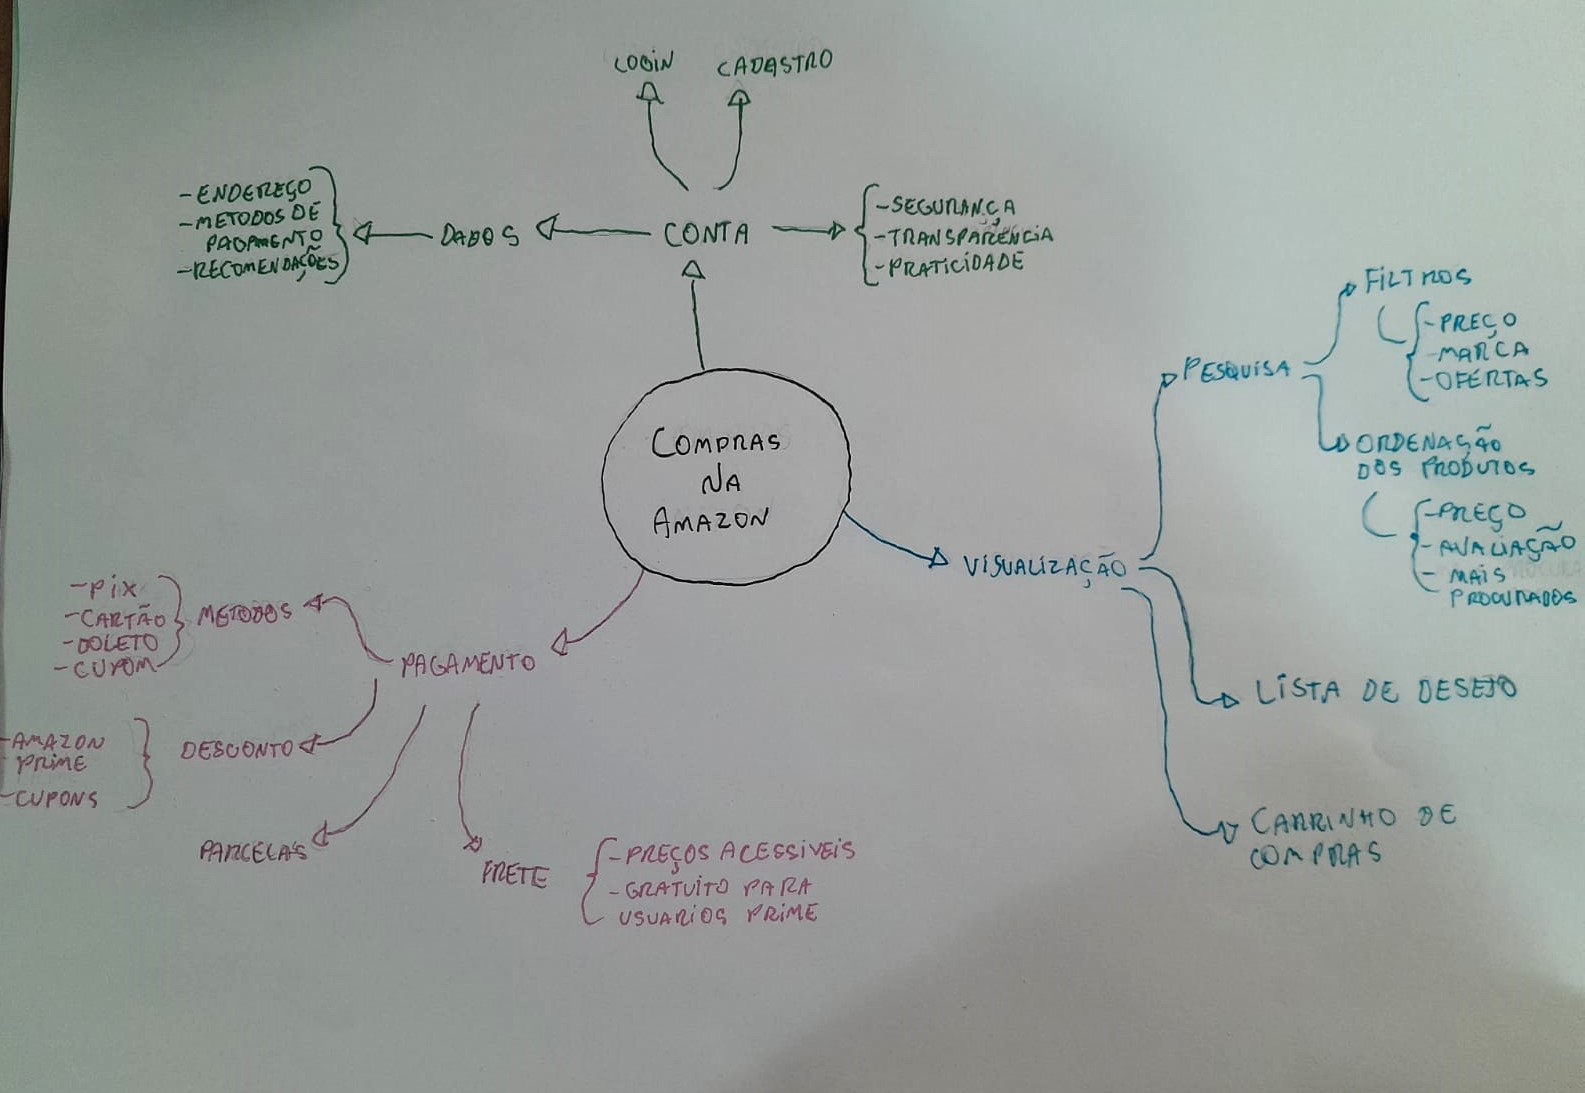 LOGIN
CADASTRO
-ENDEREÇO
-METODOS DE
PAGAMENTO
-RECOMENDAÇÕES
DADOS
CONTA
-SEGURANÇA
-TRANSPARÊNCIA
-PRATICIDADE
COMPRAS
NA
AMAZON
VISUALIZAÇÃO
PESQUISA
FILTROS
-PREÇO
-MARCA
-OFERTAS
ORDENAÇÃO
DOS PRODUTOS
-PREÇO
-AVALIAÇÃO
- MAIS
PROCURADOS
LISTA DE DESEJO
CARRINHO DE
COMPRAS
PAGAMENTO
METODOS
-PIX
-CARTÃO
-BOLETO
-CUPOM
DESCONTO
-AMAZON
PRIME
-CUPONS
PARCELAS
FRETE
-PREÇOS ACESSIVEIS
-GRATUITO PARA
USUARIOS PRIME